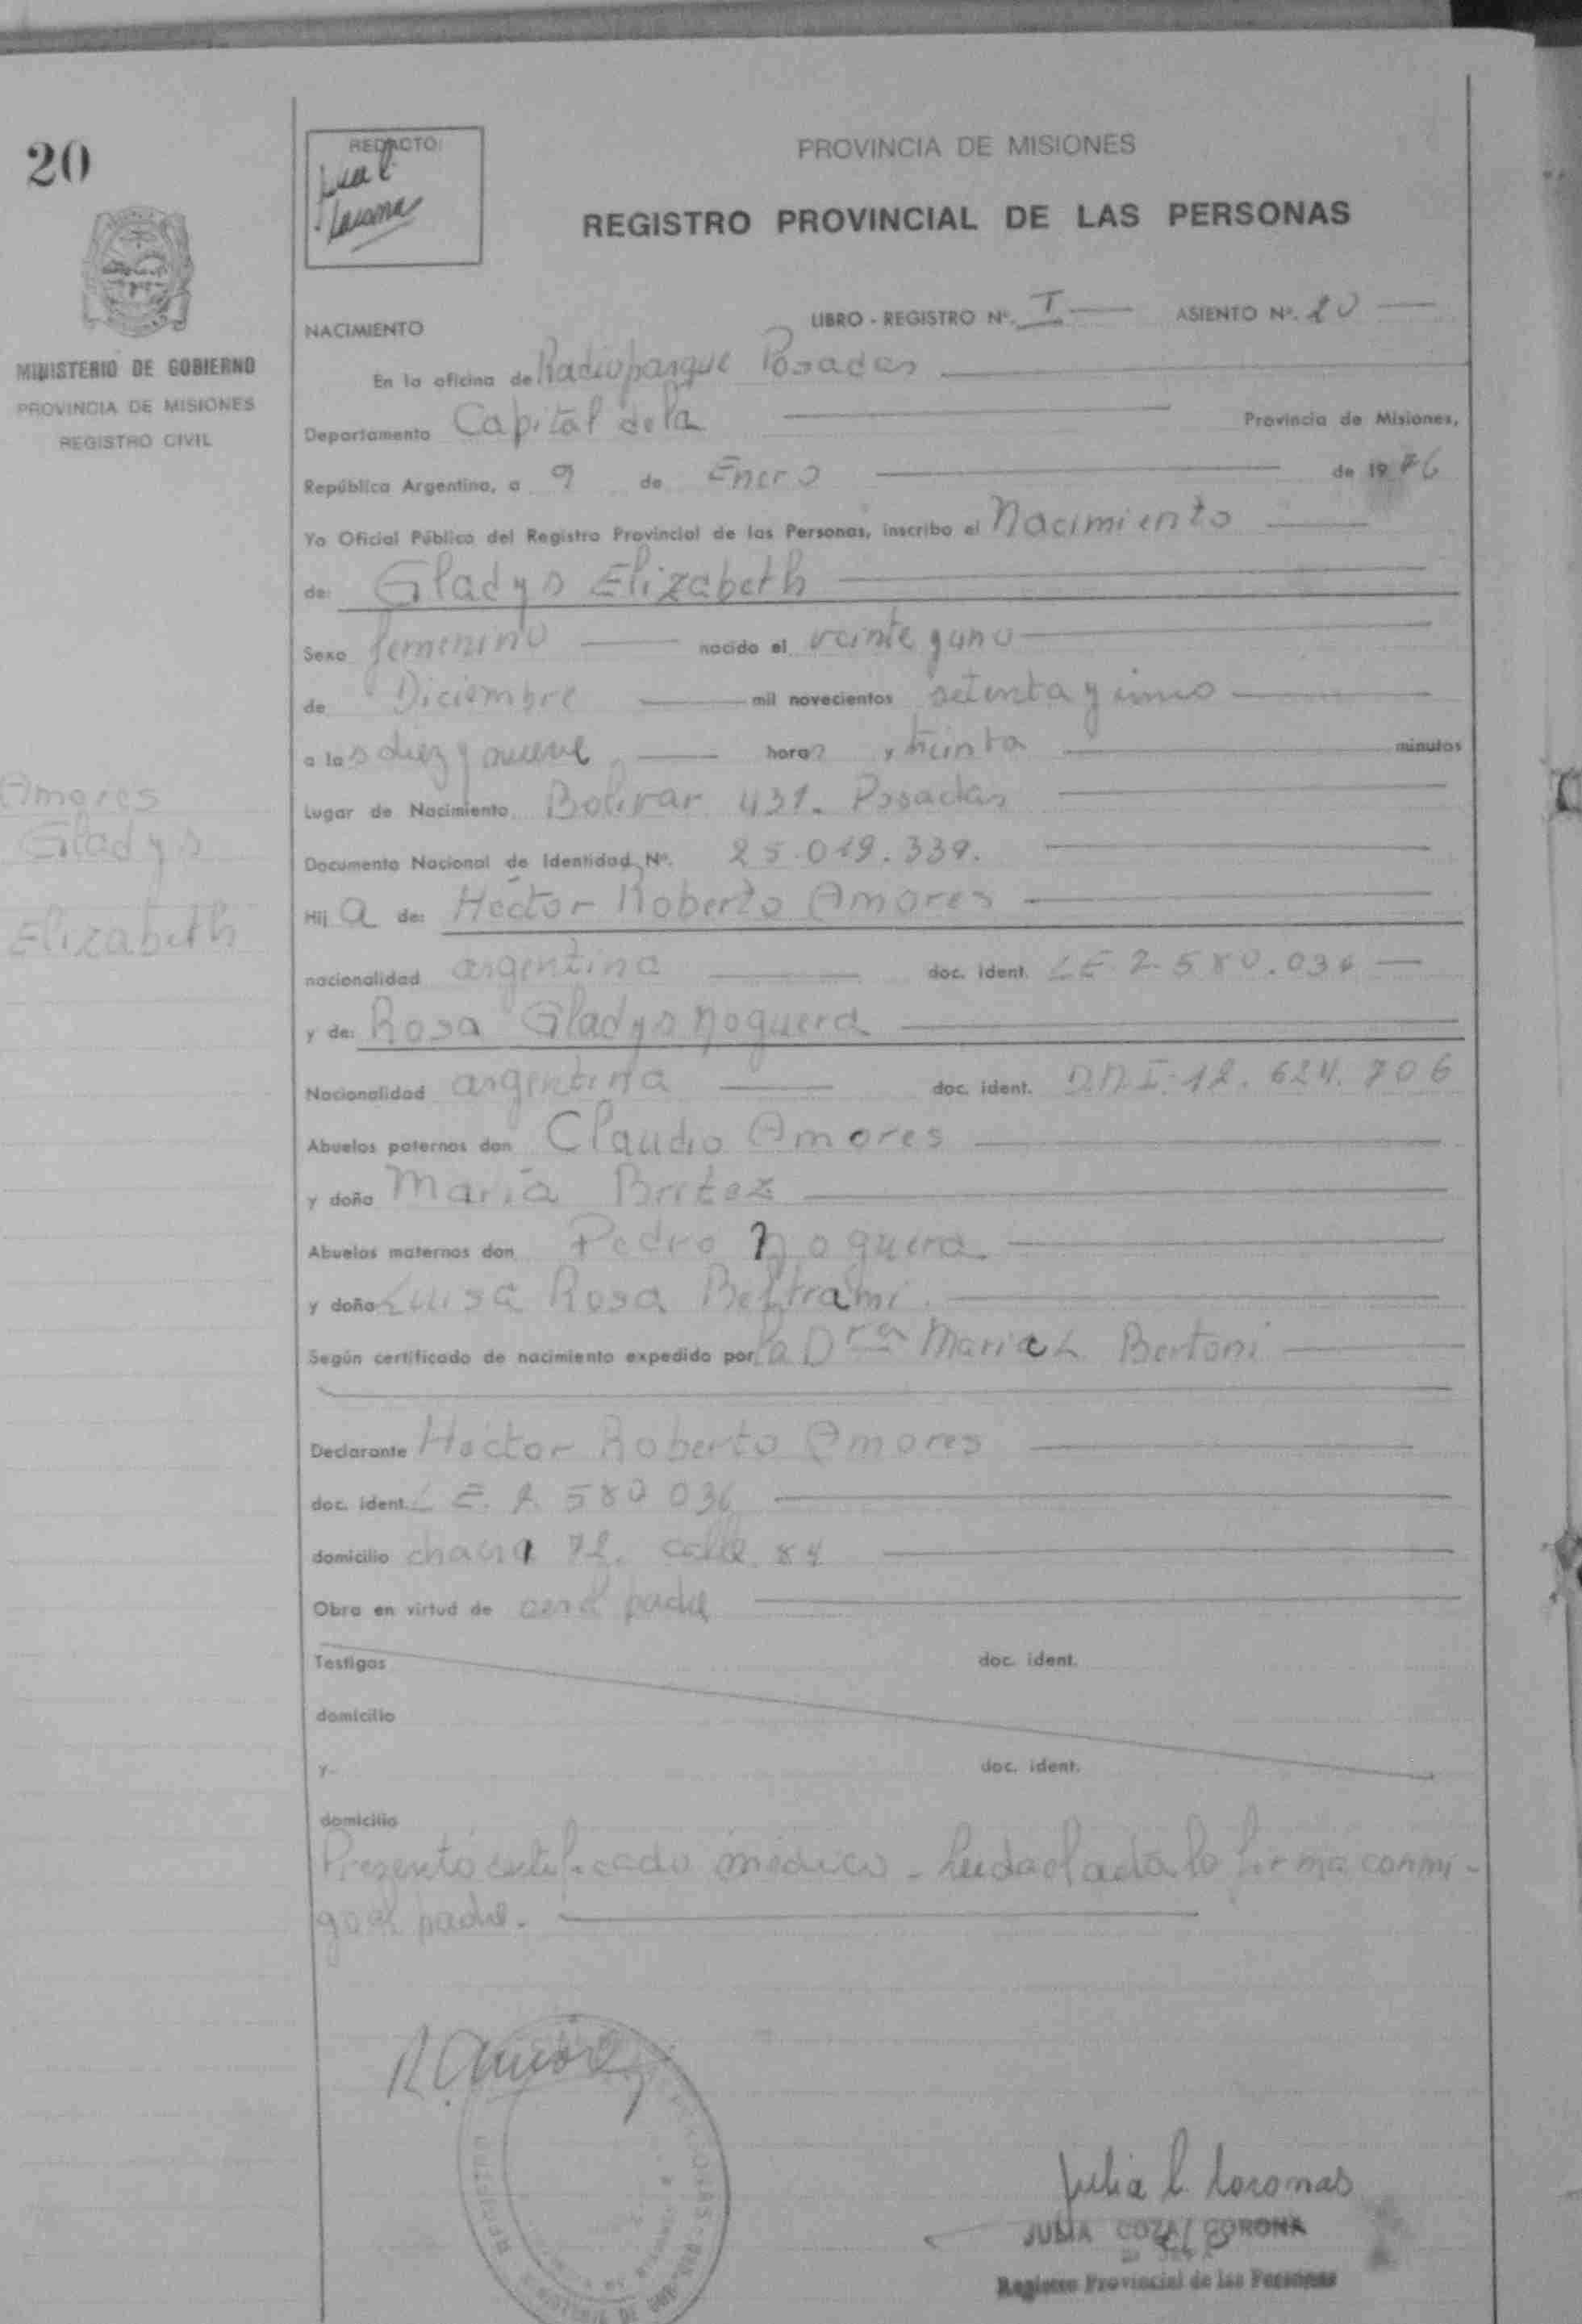 20
MINISTERIO DE GOBIERNO
PROVINCIA DE MISIONES
REGISTRO CIVIL
REDACTO:
PROVINCIA DE MISIONES
REGISTRO PROVINCIAL DE LAS PERSONAS
NACIMIENTO
LIBRO - REGISTRO Nº. I ASIENTO Nº. 20
En la oficina de Radioparque Posadas
Departamento Capital de la Provincia de Misiones,
República Argentina, a 9 de Enero de 1976
Yo Oficial Público del Registro Provincial de las Personas, inscribo el Nacimiento
de: Gladys Elizabeth
Sexo femenino nacido el veinte y uno
de Diciembre mil novecientos setenta y cinco
a las diez y nueve horas y treinta minutos
Lugar de Nacimiento Bolivar 431. Posadas
Documento Nacional de Identidad Nº. 25.019.339.
Amores
Gladys
Elizabeth
Hij a de: Héctor Roberto Amores
nacionalidad argentina doc. ident. LE. 2.580.036
y de: Rosa Gladys Noguera
Nacionalidad argentina doc. ident. D.N.I. 12.624.706
Abuelos paternos don Claudio Amores
y doña María Britez
Abuelos maternos don Pedro Noguera
y doña Luisa Rosa Beltrami.
Según certificado de nacimiento expedido por la Dra Maria L Bertoni
Declarante Hector Roberto Amores
doc. ident. L E. 2. 580 036
domicilio chacra 72. calle 84
Obra en virtud de ser el padre
Testigos doc. ident.
domicilio
y. doc. ident.
domicilio
Presentó certificado médico - Leida el acta la firma conmi-
go el padre.
R. Amores
JULIA COZZI CORONA
Registro Provincial de las Personas